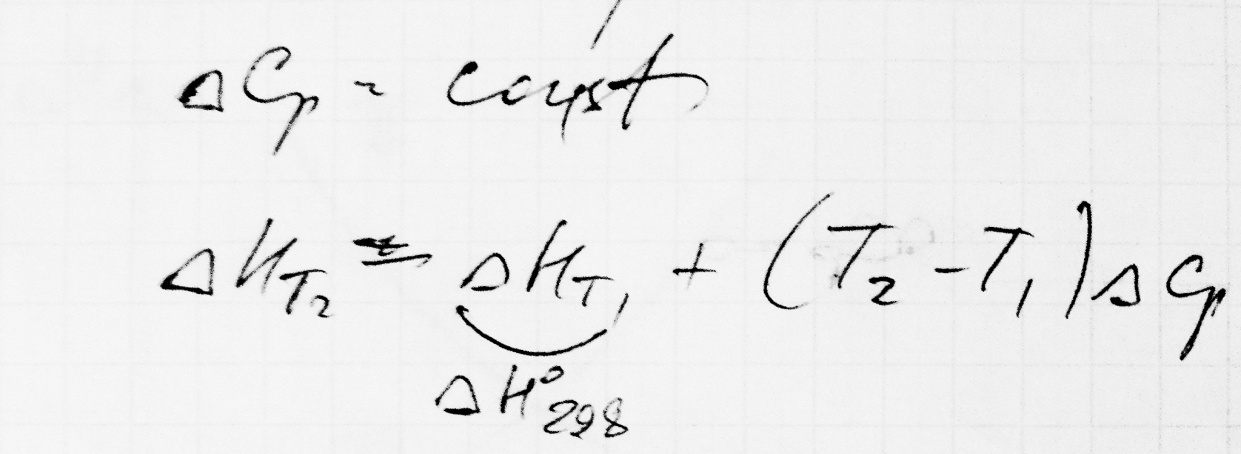 ΔCp = const
ΔH_T₂ = ΔH_T₁ + (T₂ - T₁) ΔCp
ΔH°₂₉₈